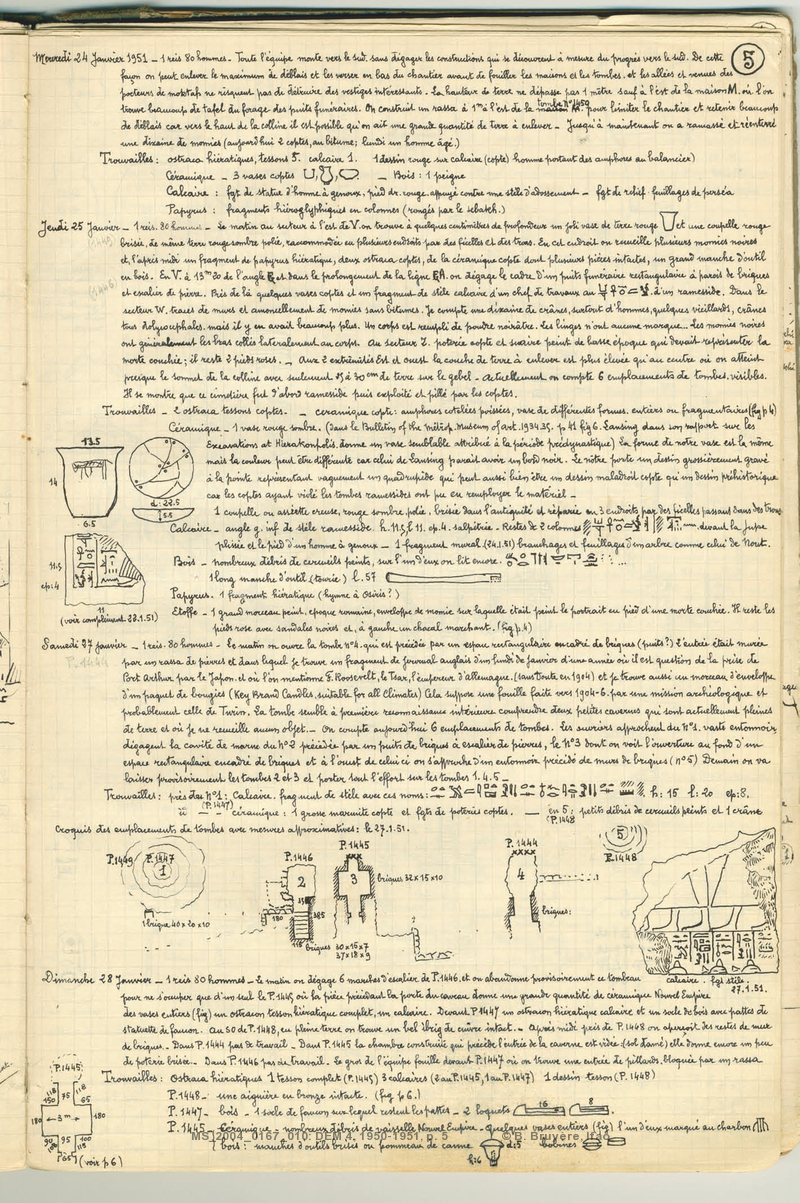 5
Mercredi 24 Janvier 1951 – 1 reis 80 hommes – Toute l'équipe monte vers le sud, sans dégager les constructions qui se découvrent à mesure du progrès vers le sud. De cette
façon on peut enlever le maximum de déblais et les verser en bas du chantier avant de fouiller les maisons et les tombes, et les allées et venues des
porteurs de moktafs ne risquent pas de détruire des vestiges intéressants. La hauteur de terre ne dépasse pas 1 mètre sauf à l'est de la maison M. où l'on
trouve beaucoup de tafel du forage des puits funéraires. On construit un rassa à 1m à l'est de la tombe n° 1450 pour limiter le chantier et retenir beaucoup
de déblais car vers le haut de la colline il est possible qu'on ait une grande quantité de terre à enlever – Jusqu'à maintenant on a ramassé et réenterré
une dizaine de momies (aujourd'hui 2 coptes, au bitume; lundi un homme âgé.)
Trouvailles : ostraca hiératiques, tessons 5. calcaire 1. 1 dessin rouge sur calcaire (copte) homme portant des amphores au balancier)
Céramique – 3 vases coptes – Bois : 1 peigne
Calcaire : fgt de statue d'homme à genoux, pied dr. rouge appuyé contre une stèle d'adossement – fgt de relief feuillages de perséa
Papyrus : fragments hiéroglyphiques en colonnes (rongés par le sebakh.)
Jeudi 25 Janvier – 1 reis. 80 hommes – Le matin au secteur à l'est de V. on trouve à quelques centimètres de profondeur un joli vase de terre rouge et une coupelle rouge
brisée, de même terre rouge sombre polie, raccommodée en plusieurs endroits par des ficelles et des trous. En cet endroit on recueille plusieurs momies noires
et, l'après midi un fragment de papyrus hiératique, deux ostraca coptes, de la céramique copte dont plusieurs pièces intactes, un grand manche d'outil
en bois. En V. à 13m20 de l'angle et dans le prolongement de la ligne on dégage le cadre d'un puits funéraire rectangulaire à parois de briques
et escalier de pierre. Près de là quelques vases coptes et un fragment de stèle calcaire d'un chef de travaux au d'un ramesside. Dans le
secteur W. traces de murs et amoncellement de momies sans bitumes. Je compte une dizaine de crânes, surtout d'hommes, quelques vieillards, crânes
tous dolycocephales. mais il y en avait beaucoup plus. Un corps est rempli de poudre noirâtre. Les linges n'ont aucune marque. Les momies noires
ont généralement les bras collés latéralement au corps. Au secteur Z. poterie copte et suaire peint de basse époque qui devait représenter la
morte couchée; il reste 2 pieds roses. – Aux 2 extrémités Est et ouest la couche de terre à enlever est plus élevée qu'au centre où on atteint
presque le sommet de la colline avec seulement 25 à 30cm de terre sur le gebel – Actuellement on compte 6 emplacements de tombes visibles.
Il se montre que ce cimetière fut d'abord ramesside puis exploité et pillé par les coptes.
Trouvailles – 2 ostraca tessons coptes. – ceramique copte: amphores cotelées poissées, vase de différentes formes, entiers ou fragmentaires (fig p 4)
Céramique – 1 vase rouge sombre. (Dans le Bulletin of the Métrop. Museum of art. 1934.35. p 41 fig 6. Lansing dans son rapport sur les
Excavations at Hierakonpolis, donne un vase semblable attribué à la période prédynastique) La forme de notre vase est la même
mais la couleur peut être différente car celui de Lansing parait avoir un bord noir. Le nôtre porte un dessin grossièrement gravé
à la pointe représentant vaguement un quadrupède qui peut aussi bien être un dessin maladroit copte qu'un dessin préhistorique
car les coptes ayant violé les tombes ramessides ont pu en remployer le matériel –
1 coupelle ou assiette creuse, rouge sombre polie, brisée dans l'antiquité et réparée au 3 endroits par des ficelles passant dans des trous
Calcaire – angle g. inf. de stèle ramesside. h. 11,5 l. 11. ep. 4. salpêtrée – Restes de 2 colonnes devant la jupe
plissée et le pied d'un homme à genoux – 1 fragment mural. (24.1.51) branchages et feuillage d'un arbre comme celui de Nout.
Bois – nombreux débris de cercueils peints, sur l'un d'eux on lit encore.
1 long manche d'outil (tourie) l. 57
Papyrus. 1 fragment hiératique (hymne à Osiris ?)
Etoffe – 1 grand morceau peint, epoque romaine, enveloppe de momie sur laquelle était peint le portrait en pied d'une morte couchée. Il reste les
pieds rose avec sandales noires et, à gauche un chacal marchant. (fig p. 4)
13.5
14
6.5
d. 22.5
5.5
11.5
ep: 4
11
(voir complément. 28.1.51)
Samedi 27 janvier – 1 reis. 80 hommes – Le matin on ouvre la tombe n°4. qui est précédée par un espace rectangulaire encadré de briques (puits?) L'entrée était murée
par un rassa de pierres et dans lequel je trouve un fragment de journal anglais d'un lundi de Janvier d'une année où il est question de la prise de
Port Arthur par le Japon. et où l'on mentionne F. Roosevelt, le Tsar, l'empereur d'allemagne. (sans doute en 1904) et je trouve aussi un morceau d'enveloppe
d'un paquet de bougies (Key Brand Candles, suitable for all Climates) Cela suppose une fouille faite vers 1904-6. par une mission archéologique et
probablement celle de Turin. La tombe semble à première reconnaissance intérieure comprendre deux petites cavernes qui sont actuellement pleines
de terre et où je ne recueille aucun objet. – On compte aujourd'hui 6 emplacements de tombes. Les ouvriers approchent du N°1. vaste entonnoir,
dégagent la cavité de marne du n°2 précédée par un puits de briques à escalier de pierres, le N°3 dont on voit l'ouverture au fond d'un
espace rectangulaire encadré de briques et à l'ouest de celui ci on s'approche d'un entonnoir précédé de murs de briques (n° 5) Demain on va
laisser provisoirement les tombes 2 et 3 et porter tout l'effort sur les tombes 1. 4. 5 –
Trouvailles : près du N°1 : Calcaire. fragment de stèle avec ces noms : h : 15 l : 20 ep : 8.
(P. 1447)
céramique : 1 grosse marmite copte et fgts de poteries coptes. – en 5 : petits débris de cercueils peints et 1 crâne
(P. 1448
Croquis des emplacements de tombes avec mesures approximatives : le 27.1.51.
P.1449
P.1447
1
1 brique 40 x 20 x 10
P.1446
2
180
briques 30 x 15 x 7
37 x 18 x 9
P.1445
3
briques 32 x 15 x 10
P.1444
4
briques :
5
P.1448
calcaire. fgt stèle.
27.1.51.
Dimanche 28 Janvier – 1 reis 80 hommes – Le matin on dégage 6 marches d'escalier de P.1446, et on abandonne provisoirement ce tombeau
pour ne s'occuper que d'un seul le P.1445 où la pièce précédant la porte du caveau donne une grande quantité de céramique Nouvel Empire
des vases entiers (fig) un ostracon tesson hiératique complet, un calcaire. Devant P.1447 un ostracon hiératique calcaire et un socle de bois avec pattes de
statuette de faucon. Au SO de P.1448, en pleine terre on trouve un bel ibrig de cuivre intact. – Après midi près de P.1448 on aperçoit des restes de murs
de briques. – Dans P.1444 pas de travail – Dans P.1445 la chambre construite qui précède l'entrée de la caverne est vidée. (sol dallé) elle donne encore un peu
de poterie brisée – Dans P.1446 pas de travail. Le gros de l'équipe fouille devant P.1447 où on trouve une entrée de pillards, bloquée par un rassa
Trouvailles : Ostraca hiératiques 1 tesson complet (P.1445) 3 calcaires (2 au P.1445, 1 au P.1447) 1 dessin tesson (P.1448)
P.1448 – une aiguière en bronze intacte. (fig p 6.)
P.1447 – bois – 1 socle de faucon sur lequel restent les pattes – 2 loquets 16 8
P.1445 – Céramique – nombreux débris de vaisselle Nouvel Empire – Quelques vases entiers (fig) l'un d'eux marqué au charbon
bois : manches d'outils brisés ou pommeau de canne d: 5 bobines
h: 6
P.1445
118
150
75
118
65
180
3m
180
95
100
(voir p 6)
MS_2004_0167_010: DEM 4, 1950-1951, p. 5 © B. Bruyère, Ifao